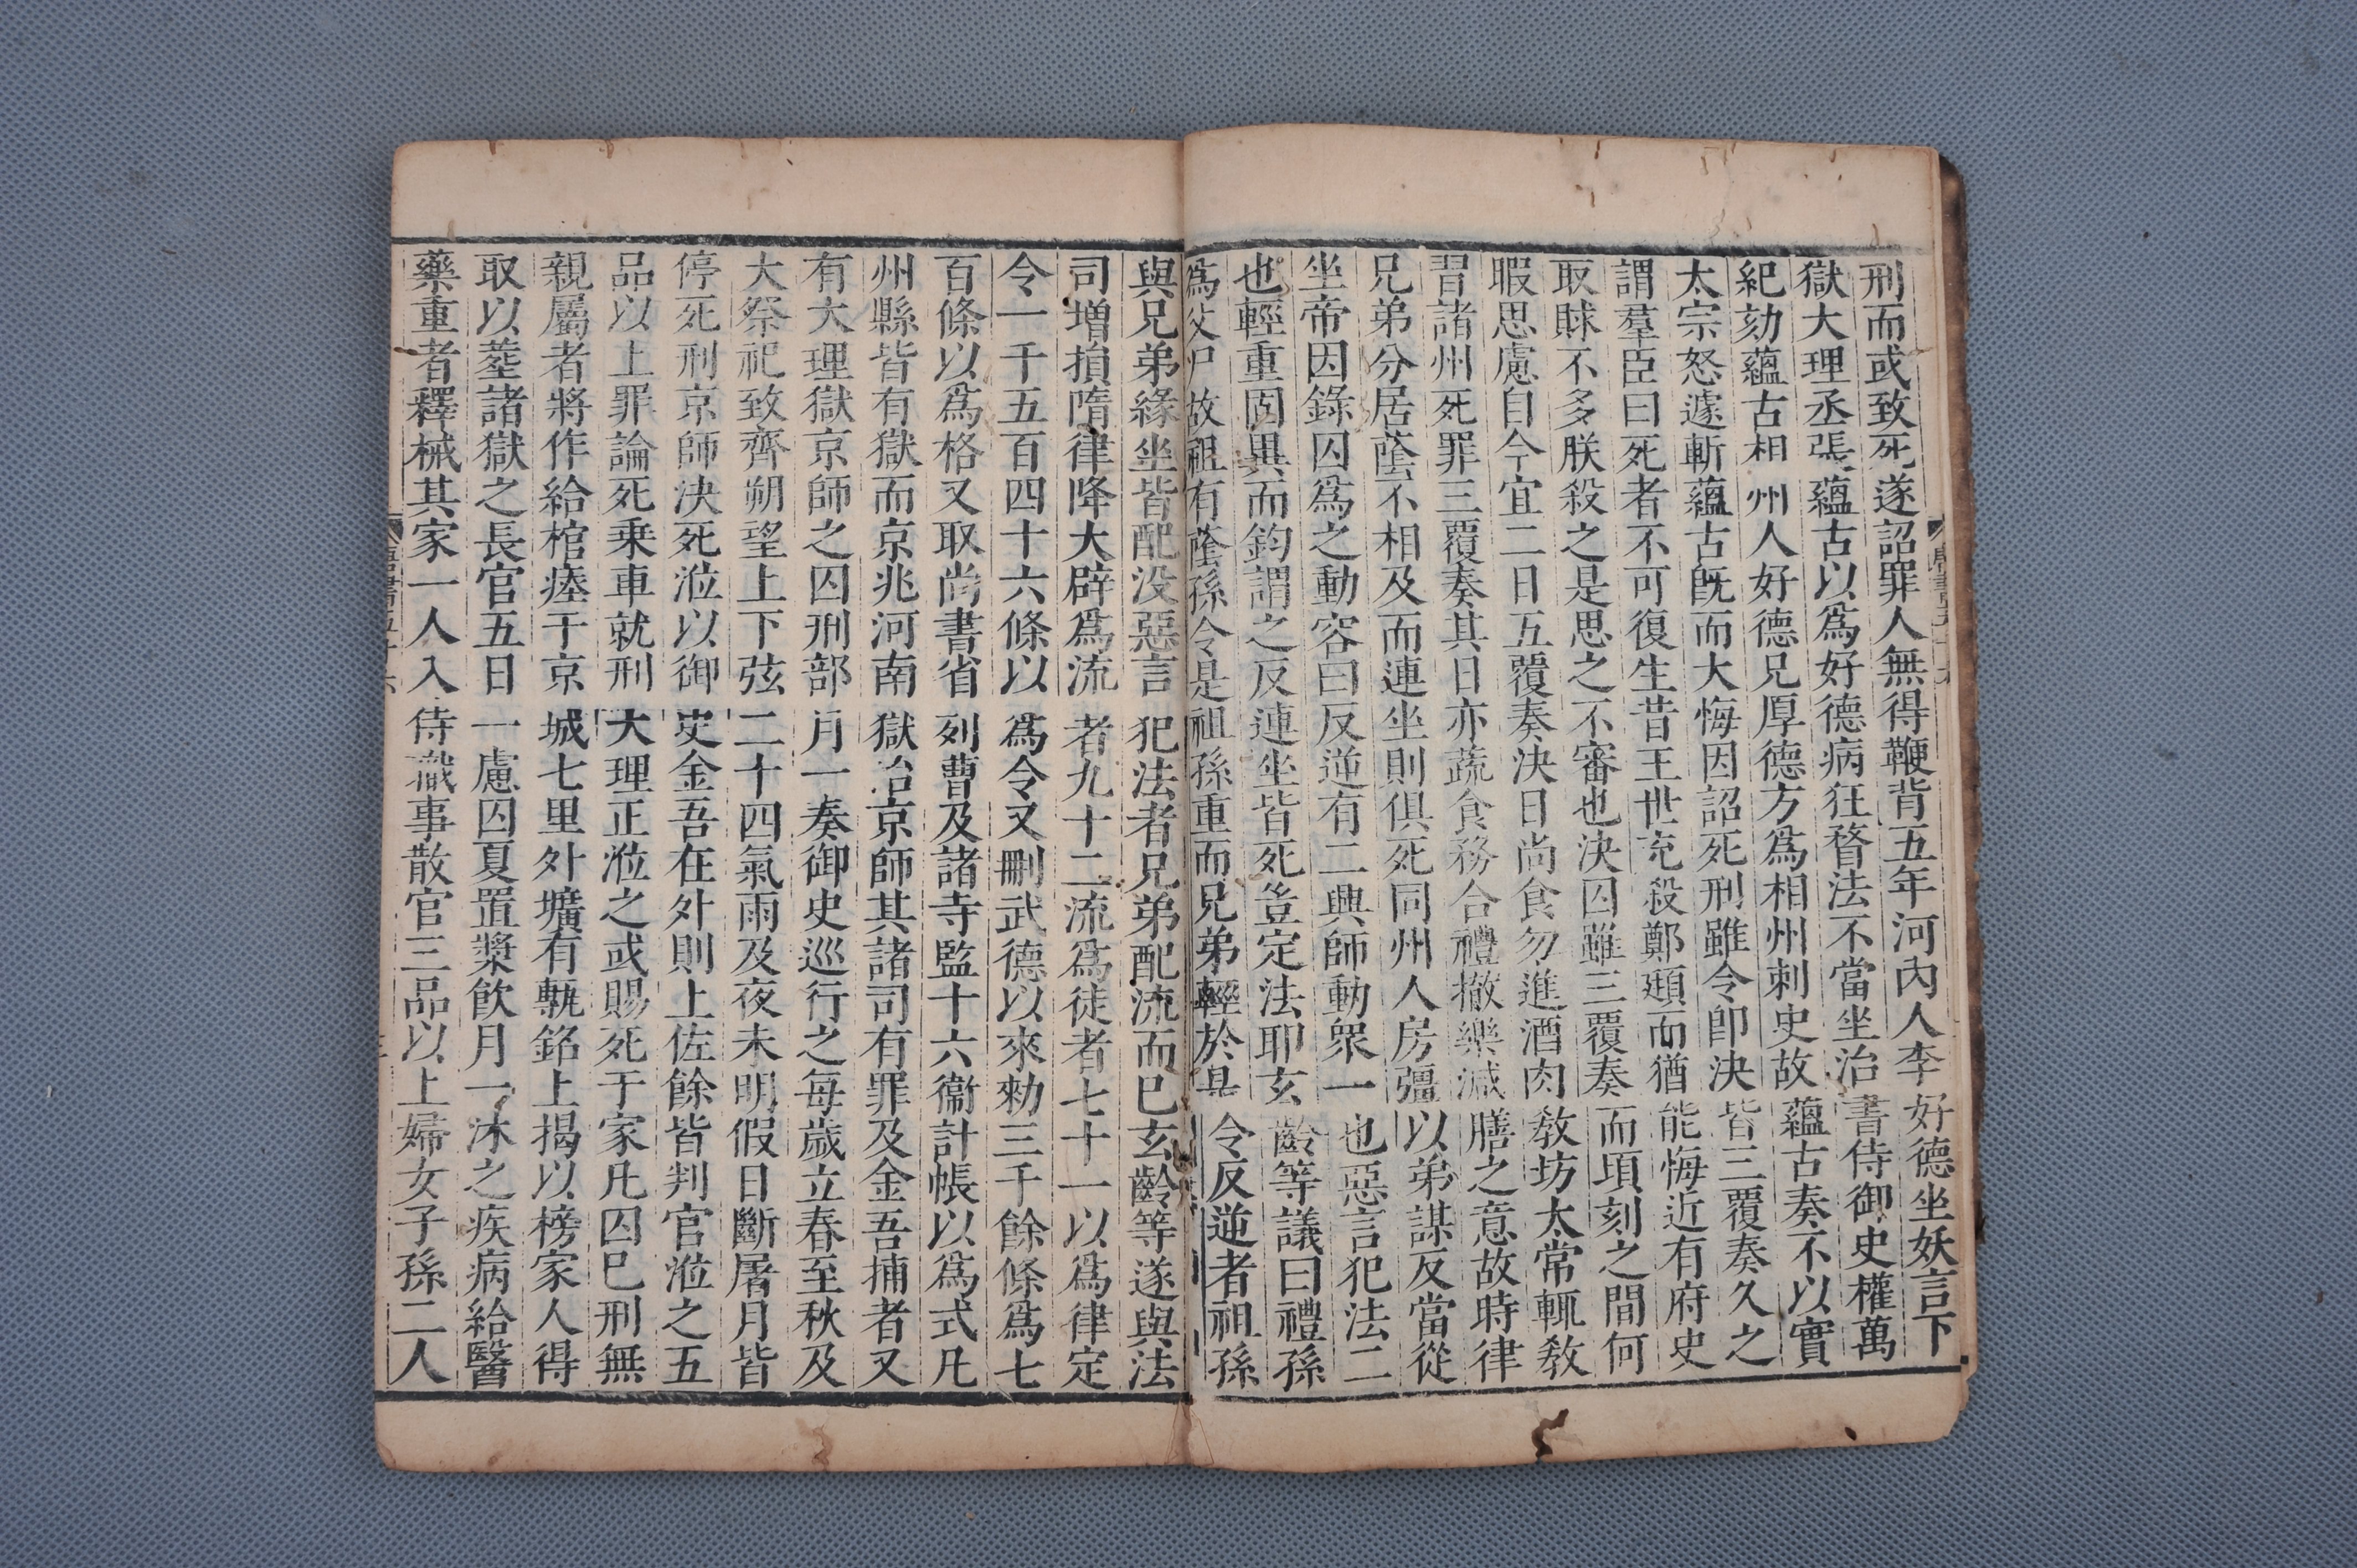 刑而或致死遂詔罪人無得鞭背五年河內人李好德坐妖言下
獄大理丞張蘊古以爲好德病狂瞀法不當坐治書侍御史權萬
紀劾蘊古相州人好德兄厚德方爲相州刺史故蘊古奏不以實
太宗怒遽斬蘊古旣而大悔因詔死刑雖令卽決皆三覆奏久之
謂羣臣曰死者不可復生昔王世充殺鄭頲而猶能悔近有府史
取賕不多朕殺之是思之不審也決囚雖三覆奏而頃刻之間何
暇思慮自今宜二日五覆奏決日尚食勿進酒肉敎坊太常輒敎
習諸州死罪三覆奏其日亦蔬食務合禮撤樂減膳之意故時律
兄弟分居蔭不相及而連坐則俱死同州人房彊以弟謀反當從
坐帝因錄囚爲之動容曰反逆有二興師動衆一也惡言犯法二
也輕重固異而鈞謂之反連坐皆死豈定法耶玄齡等議曰禮孫
爲父尸故祖有蔭孫令是祖孫重而兄弟輕於是令反逆者祖孫
與兄弟緣坐皆配没惡言犯法者兄弟配流而已玄齡等遂與法
司增損隋律降大辟爲流者九十二流爲徒者七十一以爲律定
令一千五百四十六條以爲令又刪武德以來勑三千餘條爲七
百條以爲格又取尚書省列曹及諸寺監十六衞計帳以爲式凡
州縣皆有獄而京兆河南獄治京師其諸司有罪及金吾捕者又
有大理獄京師之囚刑部月一奏御史巡行之每歲立春至秋及
大祭祀致齊朔望上下弦二十四氣雨及夜未明假日斷屠月皆
停死刑京師決死涖以御史金吾在外則上佐餘皆判官涖之五
品以上罪論死乗車就刑大理正涖之或賜死于家凡囚巳刑無
親屬者將作給棺瘞于京城七里外壙有甎銘上揭以榜家人得
取以葬諸獄之長官五日一慮囚夏置漿飮月一沐之疾病給醫
藥重者釋械其家一人入侍職事散官三品以上婦女子孫二人